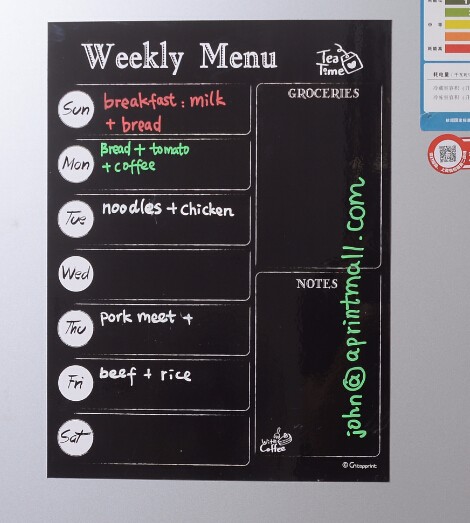 Weekly Menu
Tea
Time
Sun
breakfast: milk
+ bread
Mon
Bread + tomato
+ coffee
Tue
noodles + chicken
Wed
Thu
pork meet +
Fri
beef + rice
Sat
GROCERIES
NOTES
john@aprintmall.com
With
Coffee